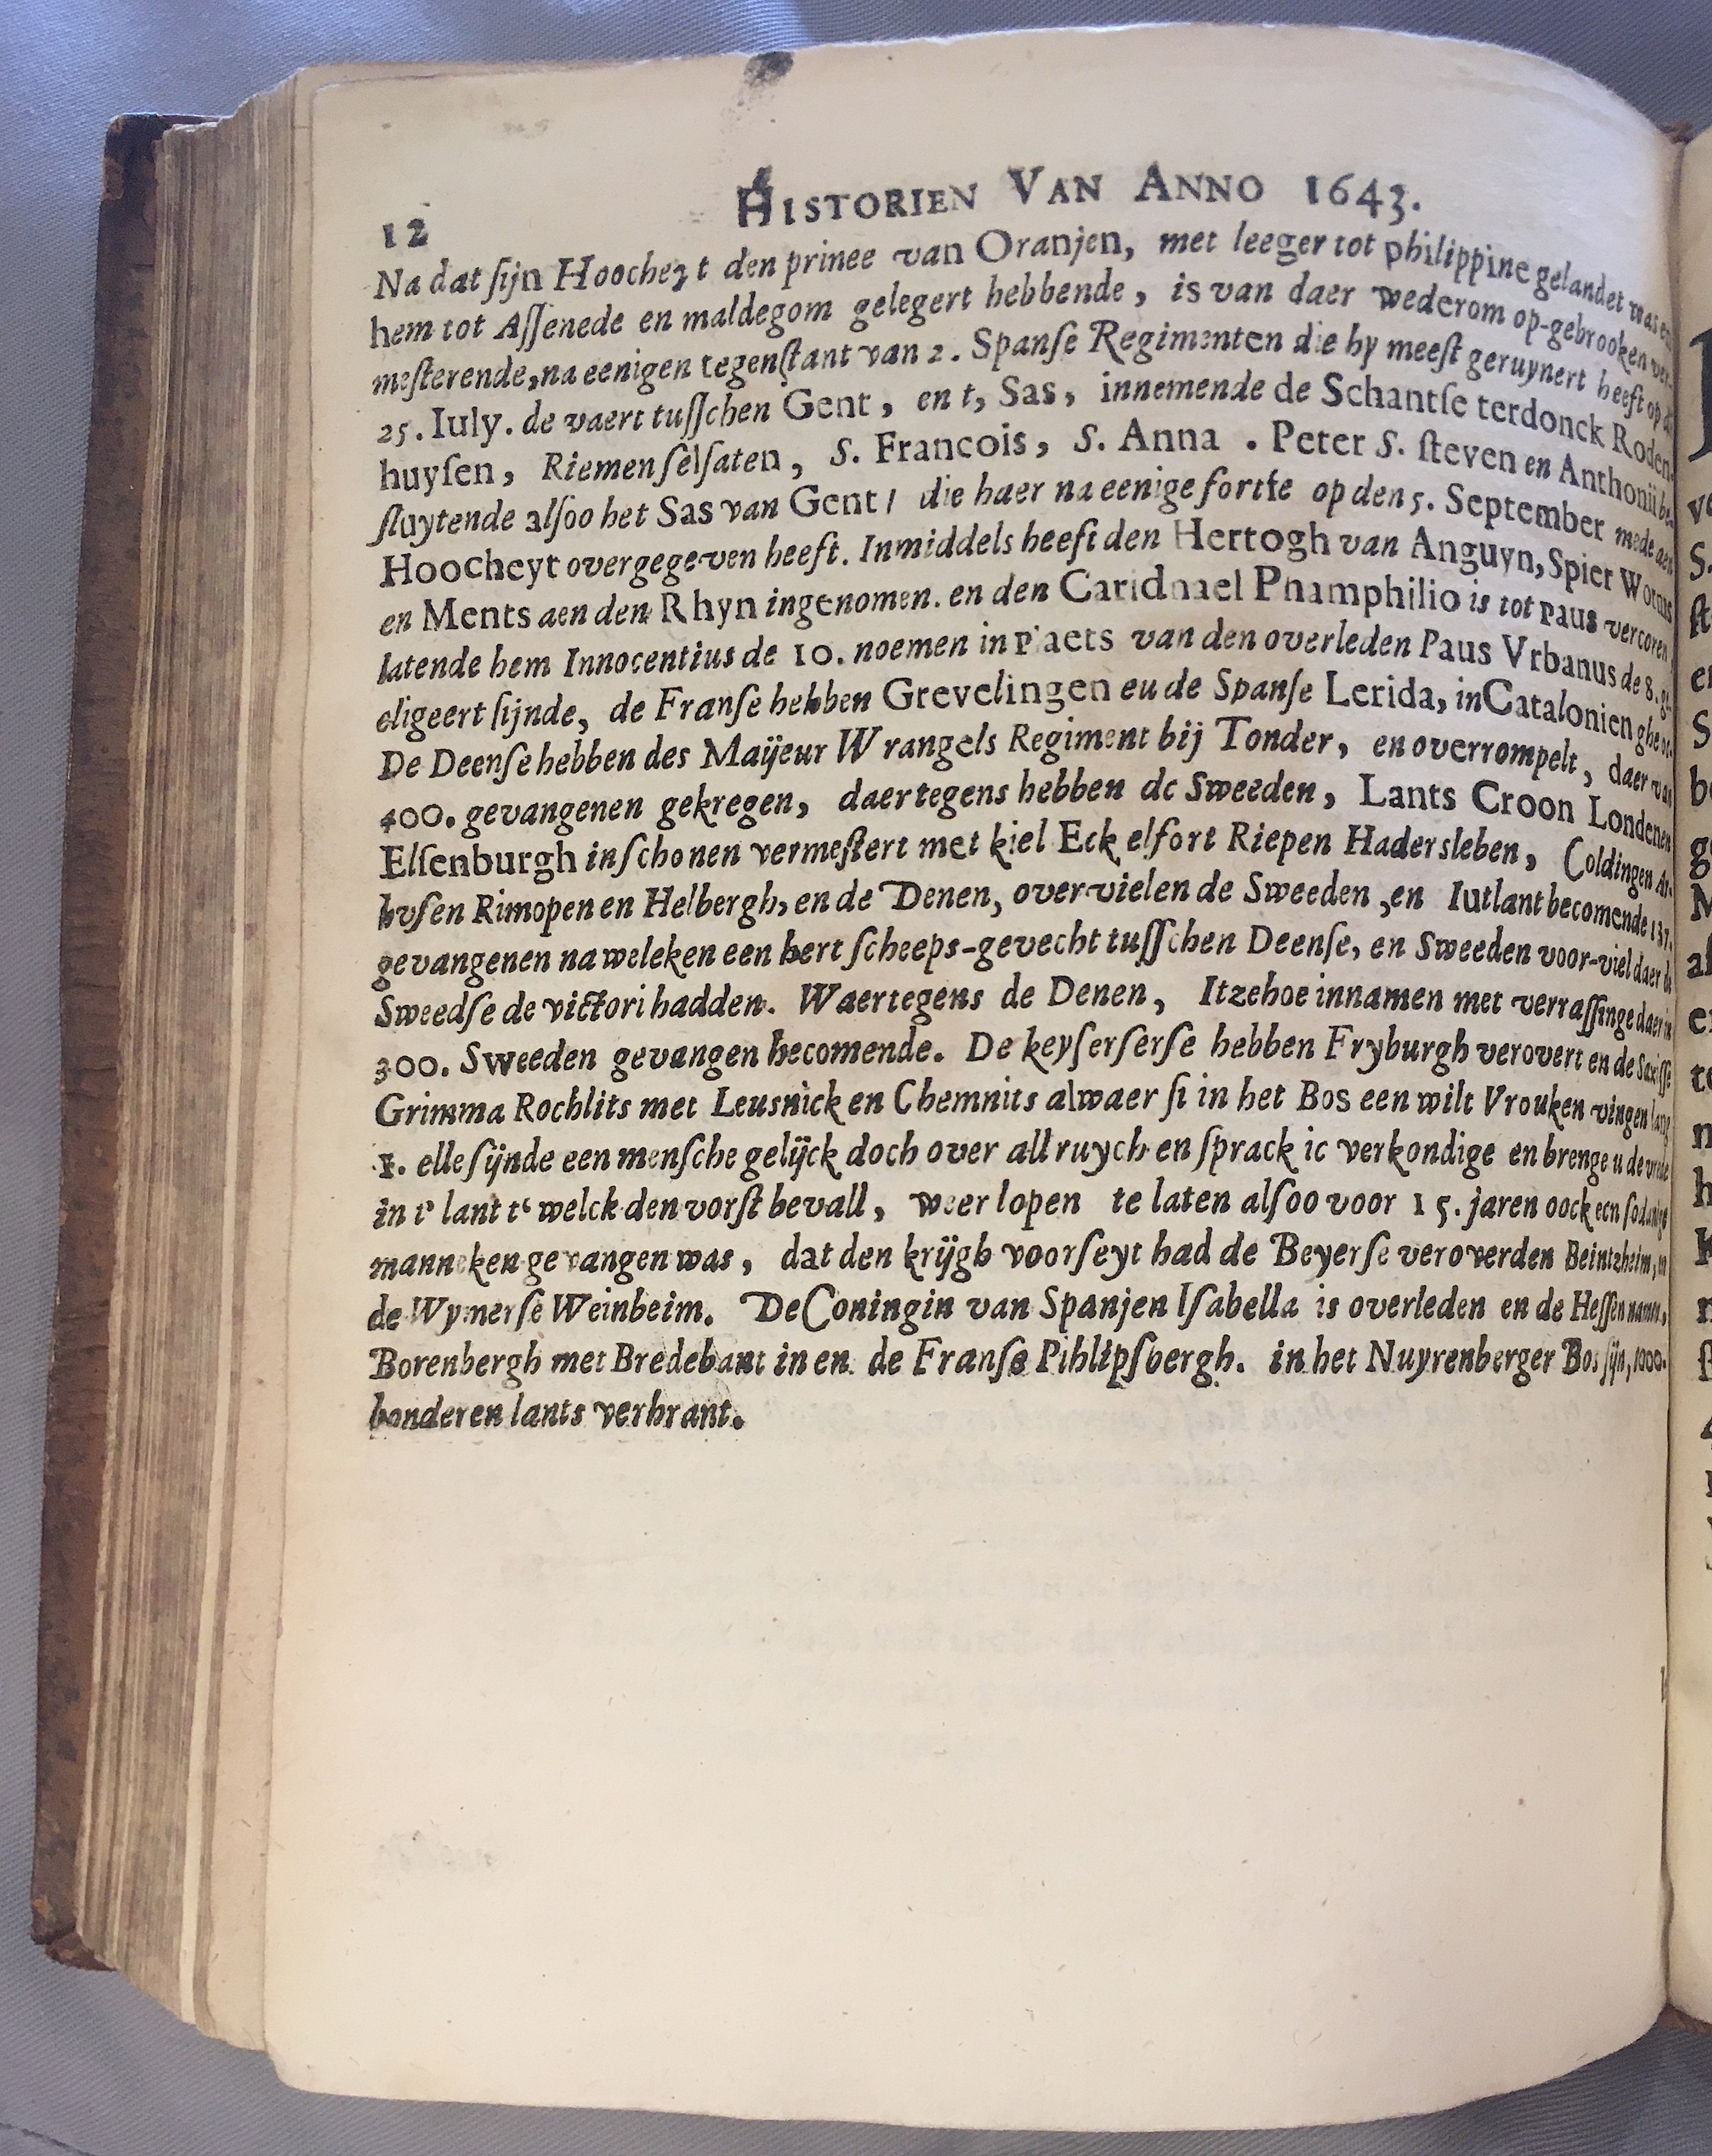 HISTORIEN VAN ANNO 1643.
12
Na dat ſijn Hoocheyt den prinee van Oranjen, met leeger tot philippine gelandet was en
hem tot Aſſenede en maldegom gelegert hebbende, is van daer wederom op-gebrooken ver-
meſterende, na eenigen tegenſtant van 2. Spanſe Regimenten die hy meeſt geruynert heeft op
25. Iuly. de vaert tuſſchen Gent, en t, Sas, innemende de Schantſe terdonck Roden-
huyſen, Riemenſelſaten, S. Francois, S. Anna . Peter S. ſteven en Anthonij be-
ſluytende alſoo het Sas van Gent / die haer na eenige fortſe op den 5. September mede aen
Hoocheyt overgegeven heeft. Inmiddels heeft den Hertogh van Anguyn, Spier Worms
en Ments aen den Rhyn ingenomen. en den Caridnael Pnamphilio is tot paus vercoren
latende hem Innocentius de 10. noemen in Plaets van den overleden Paus Vrbanus de 8.
eligeert ſijnde, de Franſe hebben Grevelingen eu de Spanſe Lerida, in Catalonien
De Deenſe hebben des Maijeur Wrangels Regiment bij Tonder, en overrompelt, daer van
400. gevangenen gekregen, daertegens hebben de Sweeden, Lants Croon Londenen
Elſenburgh in ſchonen vermeſtert met kiel Eck elfort Riepen Hadersleben, Coldingen Ar-
huſen Rimopen en Helbergh, en de Denen, overvielen de Sweeden ,en Iutlant becomende 137.
gevangenen na weleken een hert ſcheeps-gevecht tuſſchen Deenſe, en Sweeden voor-viel daer de
Sweedſe de victori hadden. Waertegens de Denen, Itzehoe innamen met verraſſinge daer in
300. Sweeden gevangen becomende. De keyſerſerſe hebben Fryburgh verovert en de Saxiſſe
Grimma Rochlits met Leusnick en Chemnits alwaer ſi in het Bos een wilt Vrouken vingen lang
1. elle ſijnde een menſche gelijck doch over all ruych en ſprack ic verkondige en brenge u de vrede
in t' lant t' welck den vorſt bevall, weer lopen te laten alſoo voor 15. jaren oock een ſodanige
manneken gevangen was, dat den krijgh voorſeyt had de Beyerſe veroverden Beintzheim, en
de Wymerſe Weinheim. De Coningin van Spanjen Iſabella is overleden en de Heſſen namen,
Borenbergh met Bredebant in en de Franſe Pihlipſbergh. in het Nuyrenberger Bos ſijn, 1000.
bonderen lants verbrant.